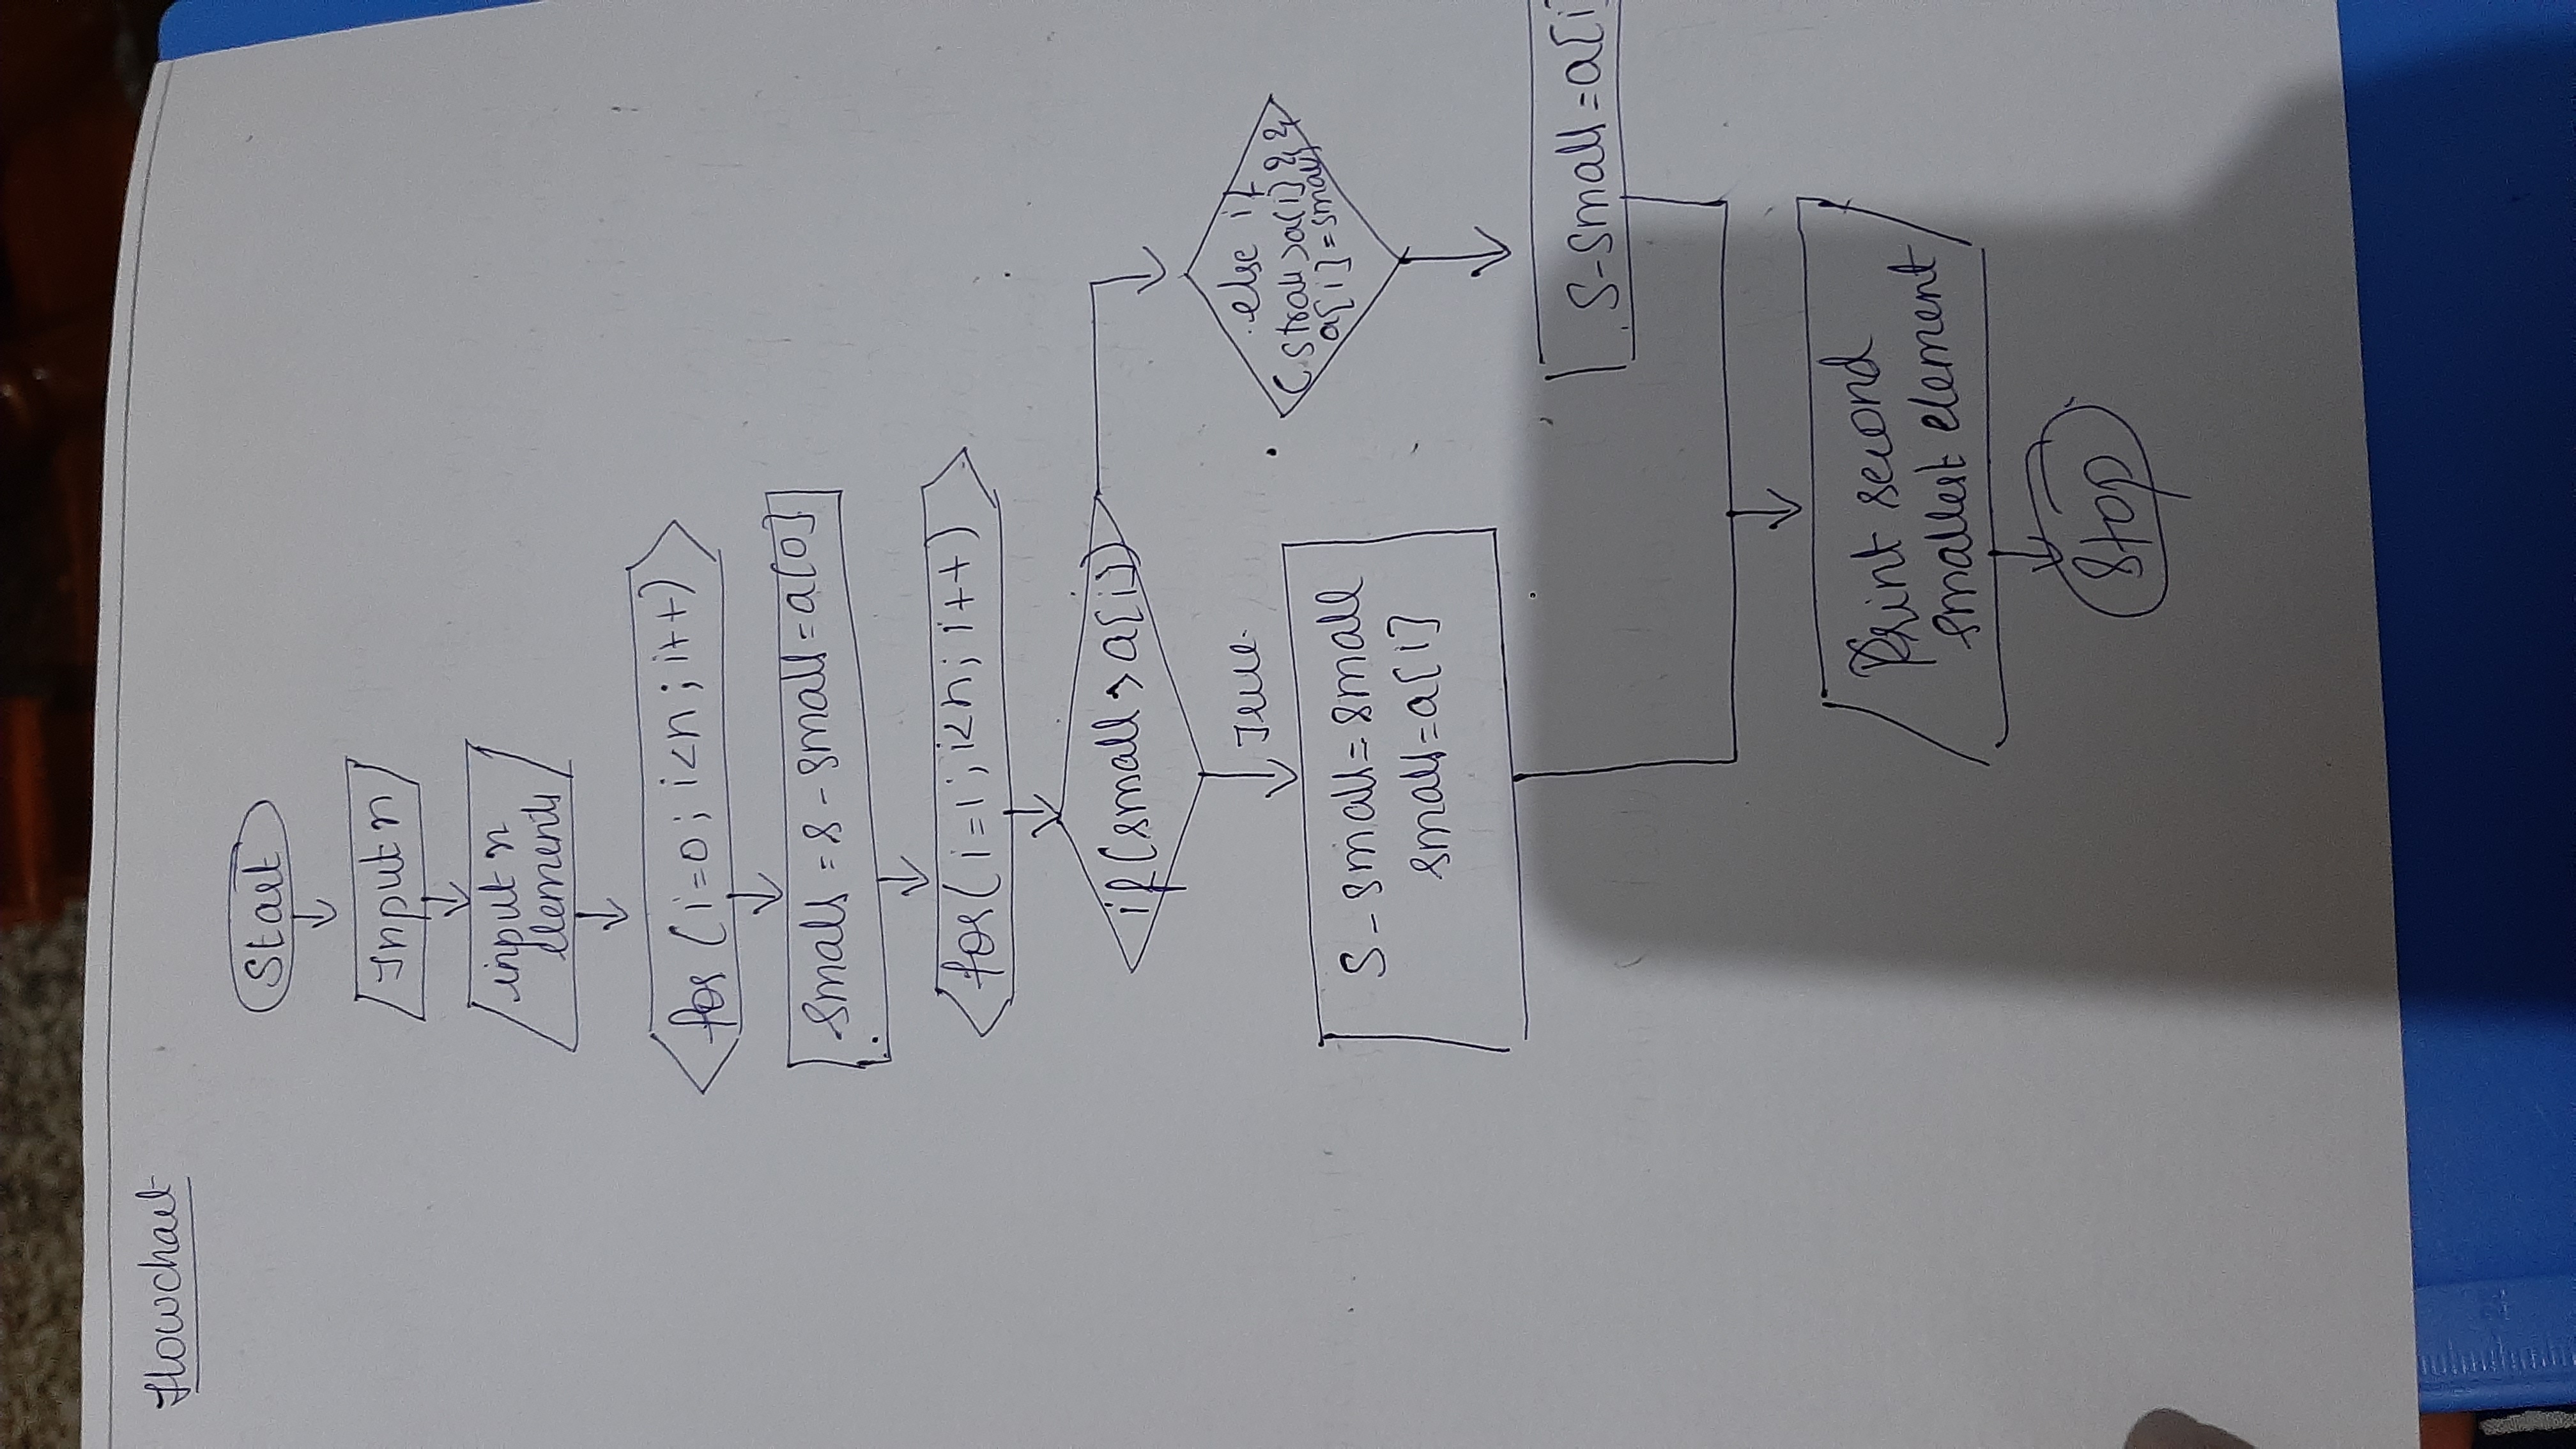 Flowchart
Start
Input n
input n
elements
for (i=0; i<n; i++)
small = s-small = a[0]
for(i=1; i<n; i++)
if(small > a[i])
True.
else if
>a[i] &&
a[i]=small)
S-small=small
small=a[i]
S-small=a[i]
Print second
smallest element
Stop